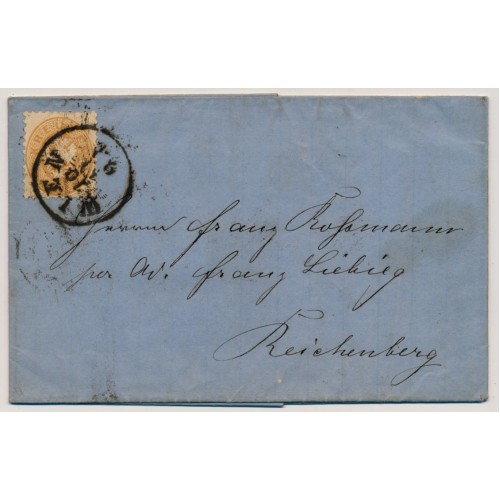 WIEN
Herrn Franz Roßmann
per Ad. Franz Liebieg
Reichenberg